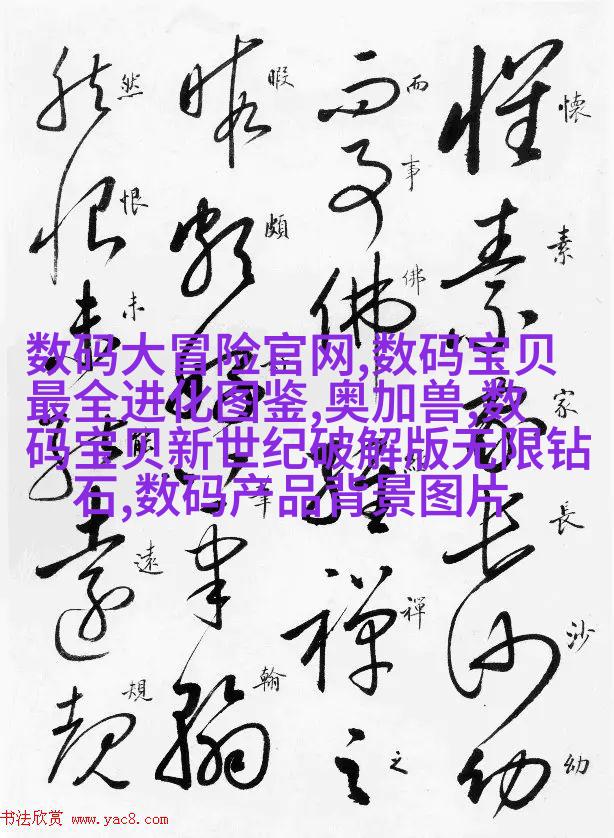 懷素家長沙幼
而事佛經禪之
暇頗好筆翰
然恨未能遠覩
数码大冒险官网,数码宝贝
最全进化图鉴,奥加兽,数
码宝贝新世纪破解版无限钻
石,数码产品背景图片
书法欣赏 www.yac8.com